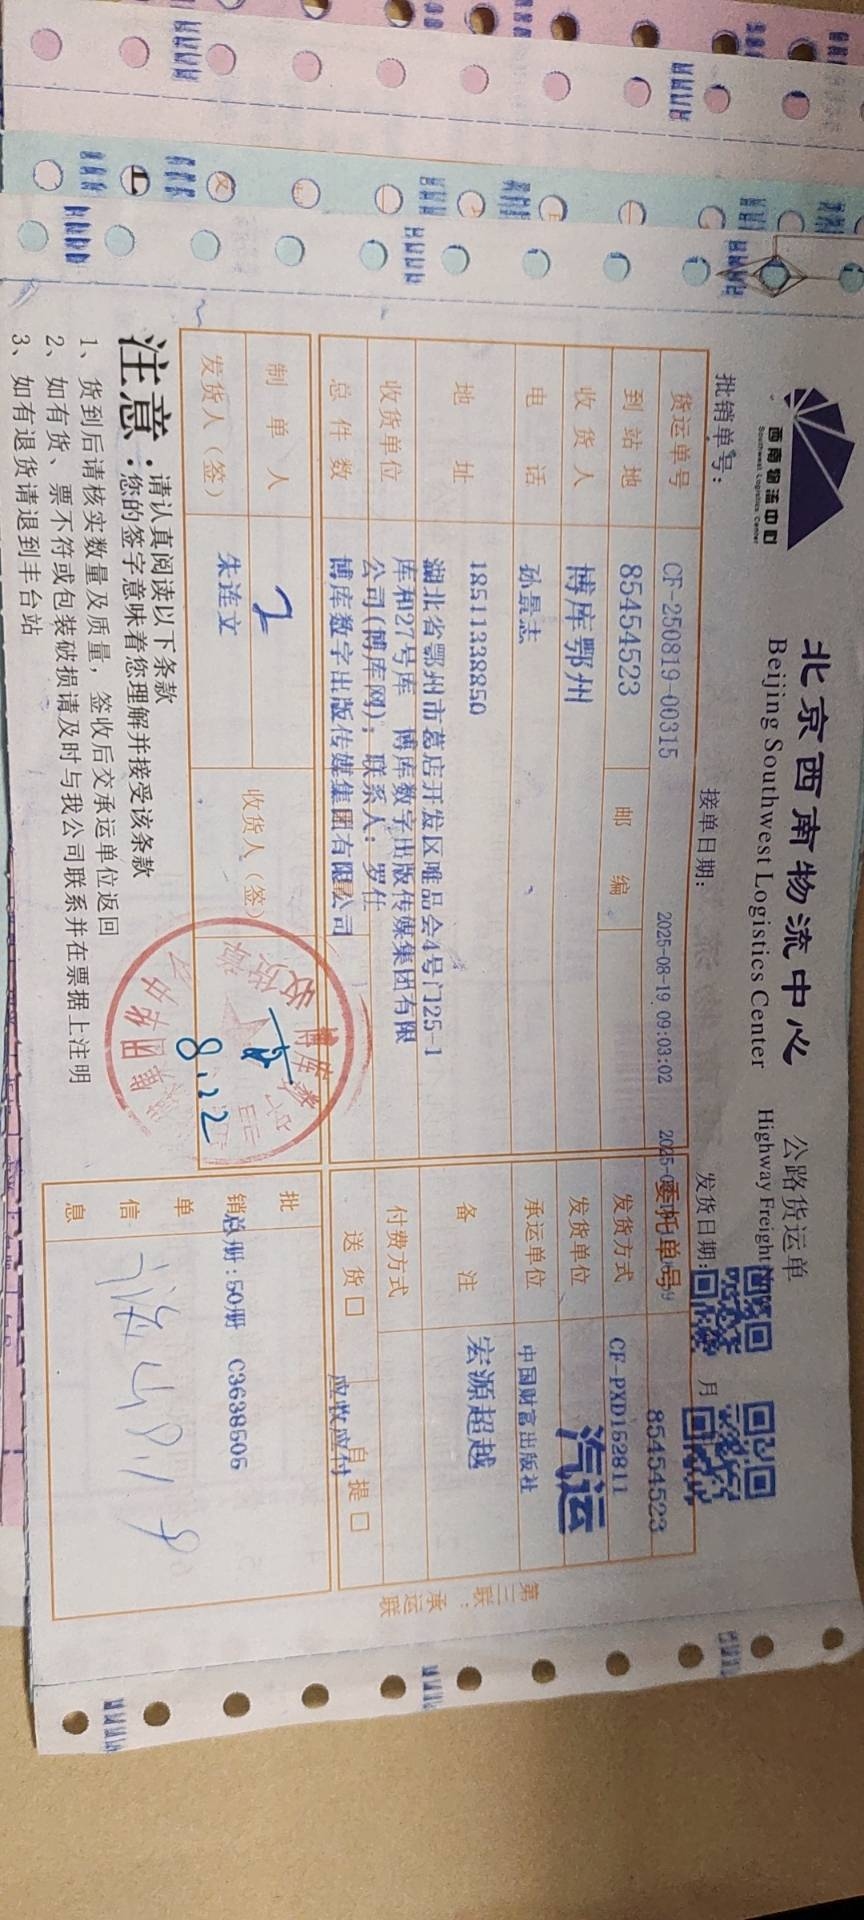 西南物流中心
Southwest Logistics Center
北京西南物流中心 公路货运单
Beijing Southwest Logistics Center Highway Freight
批销单号： 接单日期： 发货日期： 月
2025-08-19 09:03:02
货运单号 CF-250819-00315 委托单号 85454523
到站地 85454523 邮编 发货方式 CF-PXD152811
汽运
收货人 博库鄂州 发货单位 中国财富出版社
电话 孙景志 承运单位
18511338850 备注 宏源超越
地址 湖北省鄂州市葛店开发区唯品会4号门25-1
库和27号库 博库数字出版传媒集团有限
公司(博库网)，联系人：罗仕
收货单位 付费方式
博库数字出版传媒集团有限公司
总件数 2 送货□ 自提□
应收应付
制单人 朱连文 收货人（签）
发货人（签） 8.22
批销单信息
总册:50册 C3638505
注意：请认真阅读以下条款
您的签字意味着您理解并接受该条款
1、货到后请核实数量及质量，签收后交承运单位返回
2、如有货、票不符或包装破损请及时与我公司联系并在票据上注明
3、如有退货请退到丰台站
第三联：承运联